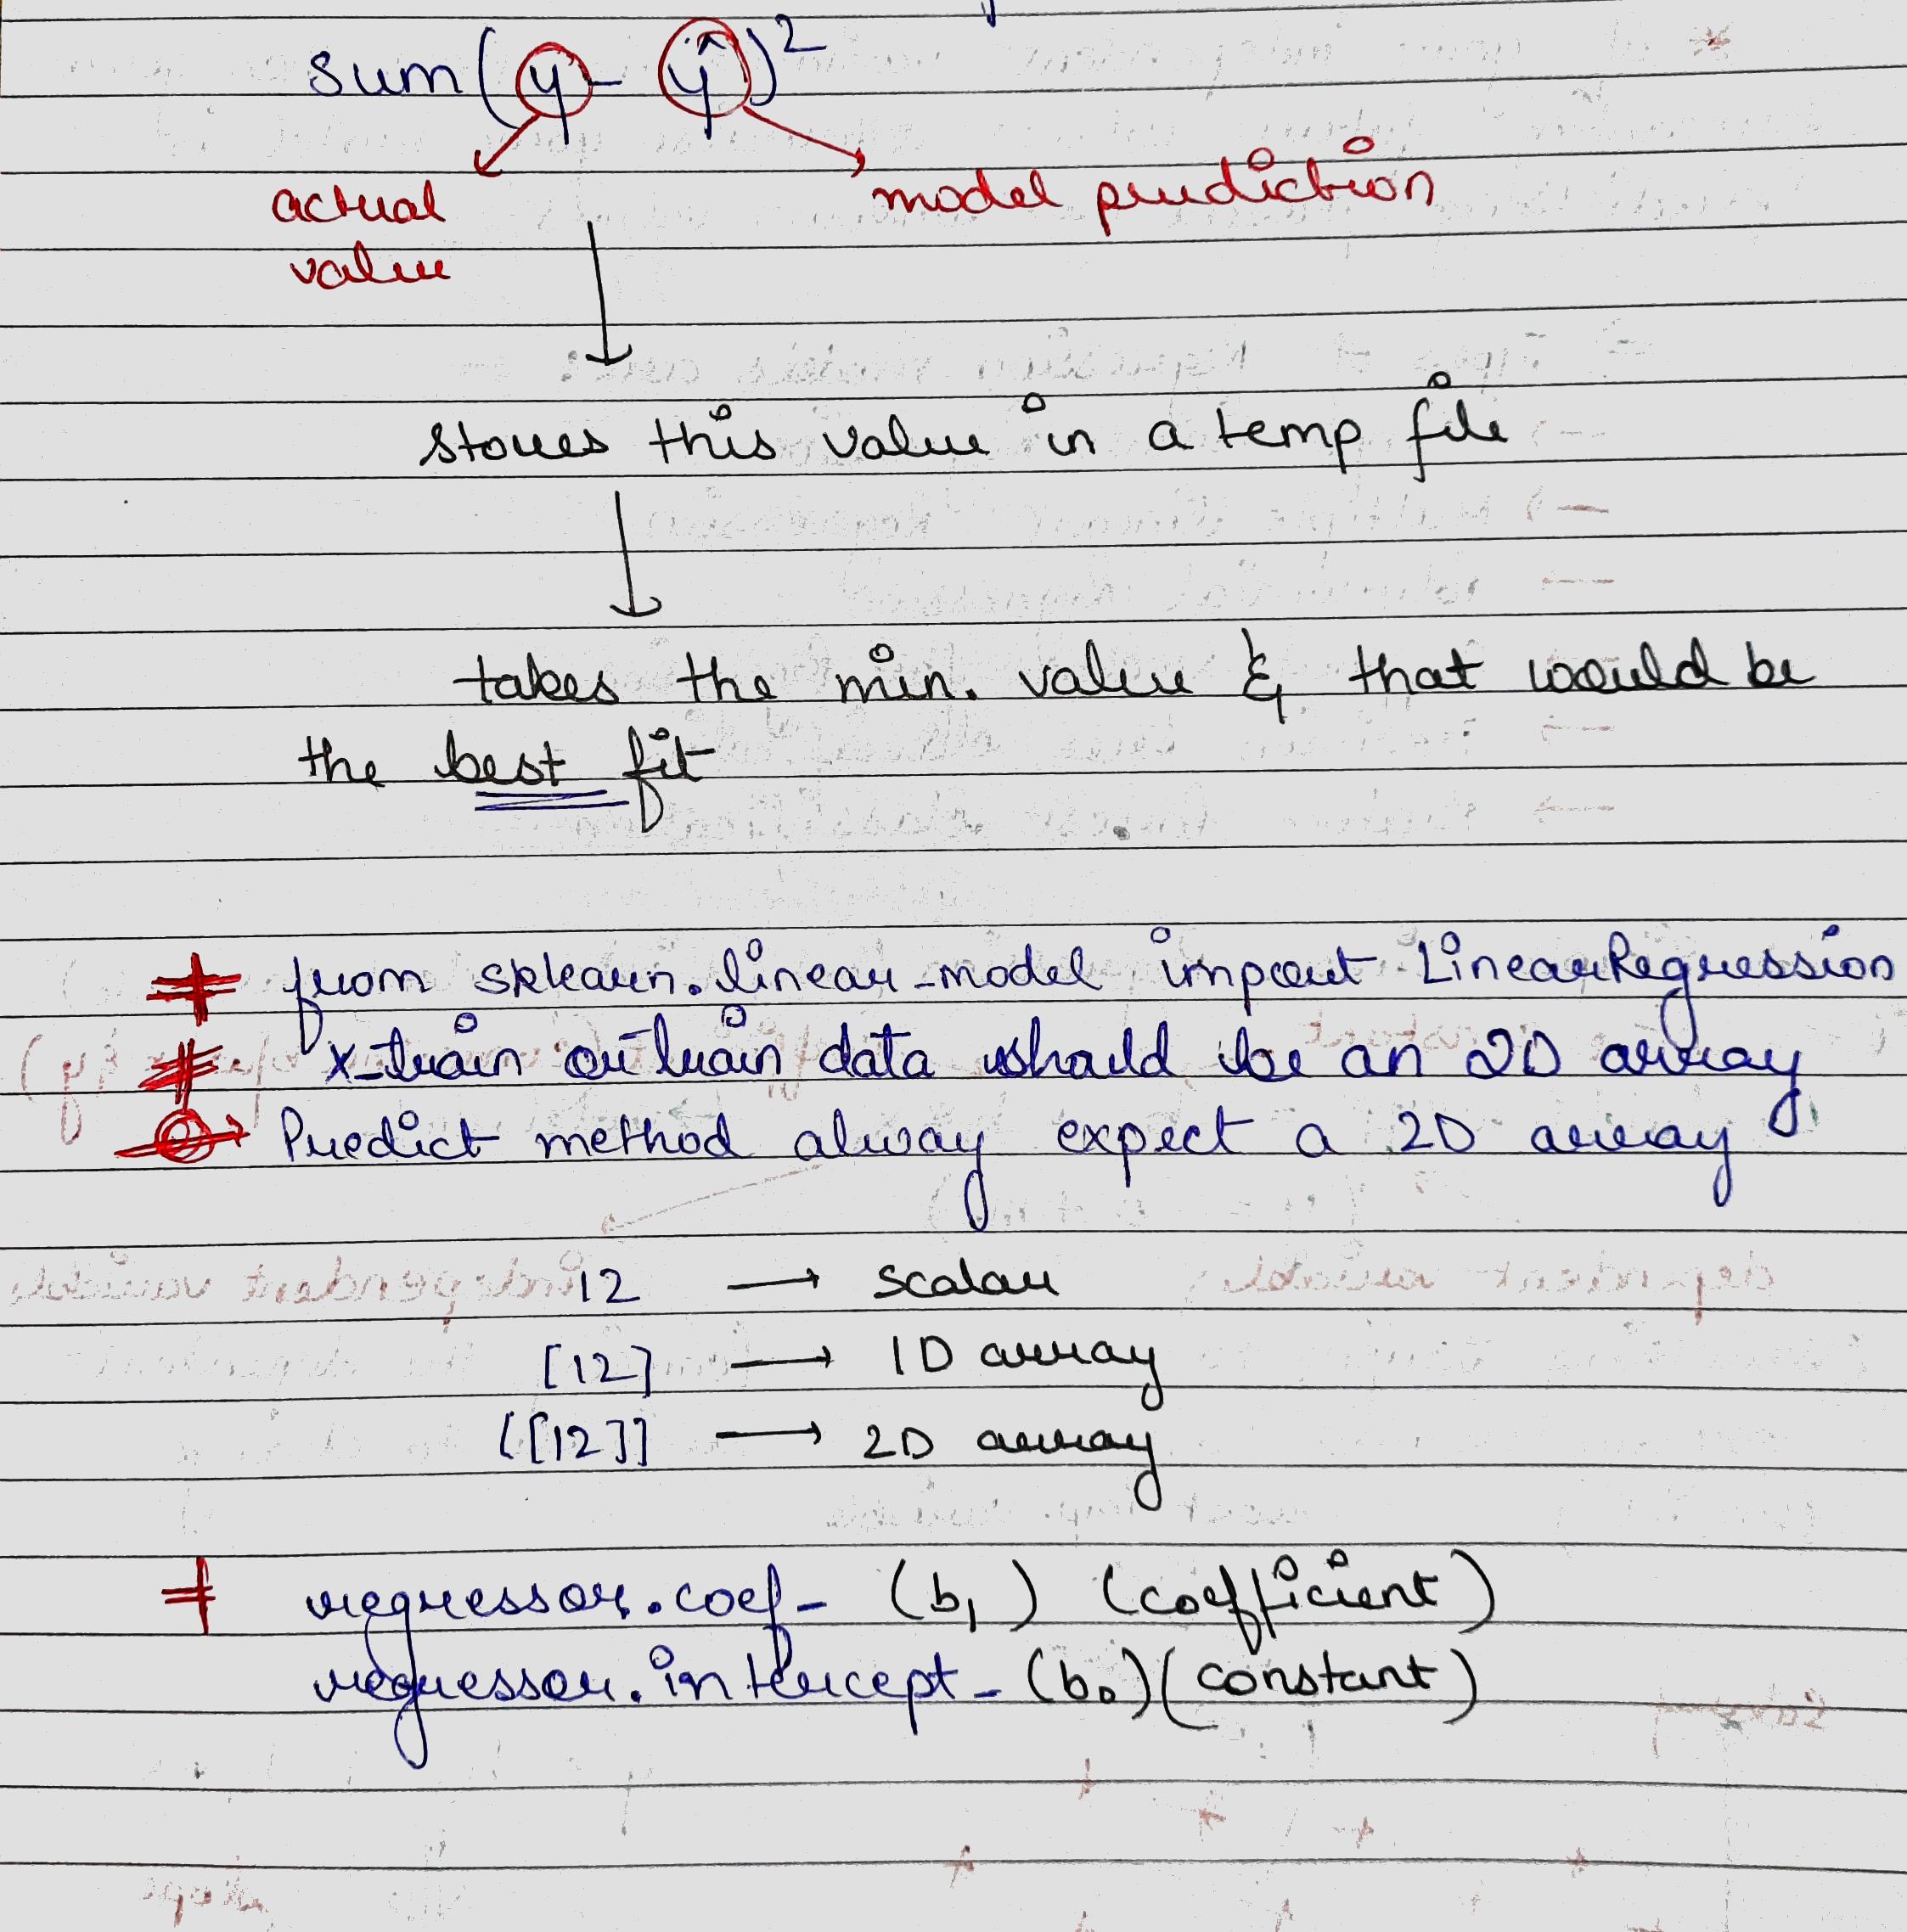 sum(y - ŷ)²
actual model prediction
value
stores this value in a temp file
takes the min. value & that would be
the best fit
from sklearn.linear_model import LinearRegression
x_train or train data should be an 2D array
Predict method alway expect a 2D array
12 → scalar
[12] → 1D array
([12]] → 2D array
regressor.coef_ (b₁) (coefficient)
regressor.intercept_ (b₀) (constant)